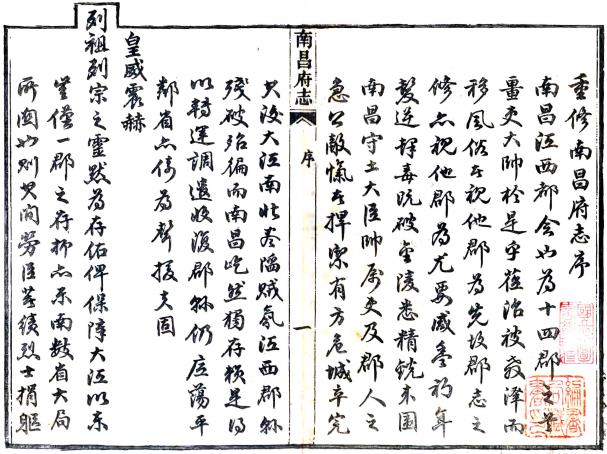 重修南昌府志序
南昌江西都會也為十四郡之首
畺吏大帥於是乎蒞治被教澤而
移風俗者視他郡為先故郡志之
修亦視他郡為尤要咸豐初年
髮逆揮毒既破金陵悉精銳來圍
南昌守土大臣帥屬吏及郡人之
急公敵愾者捍禦有方危城卒完
南昌府志
序
一
大江南北
賊氛江西郡縣
殘破殆徧而南昌屹然獨存賴是得
以轉運調遣收復郡縣仍底蕩平
鄰省亦倚為聲援夫固
皇威震赫
列祖列宗之靈默為存佑俾保障大江以東
豈僅一郡之存抑亦東南數省大局
所關也則其間勞臣藎績烈士捐軀